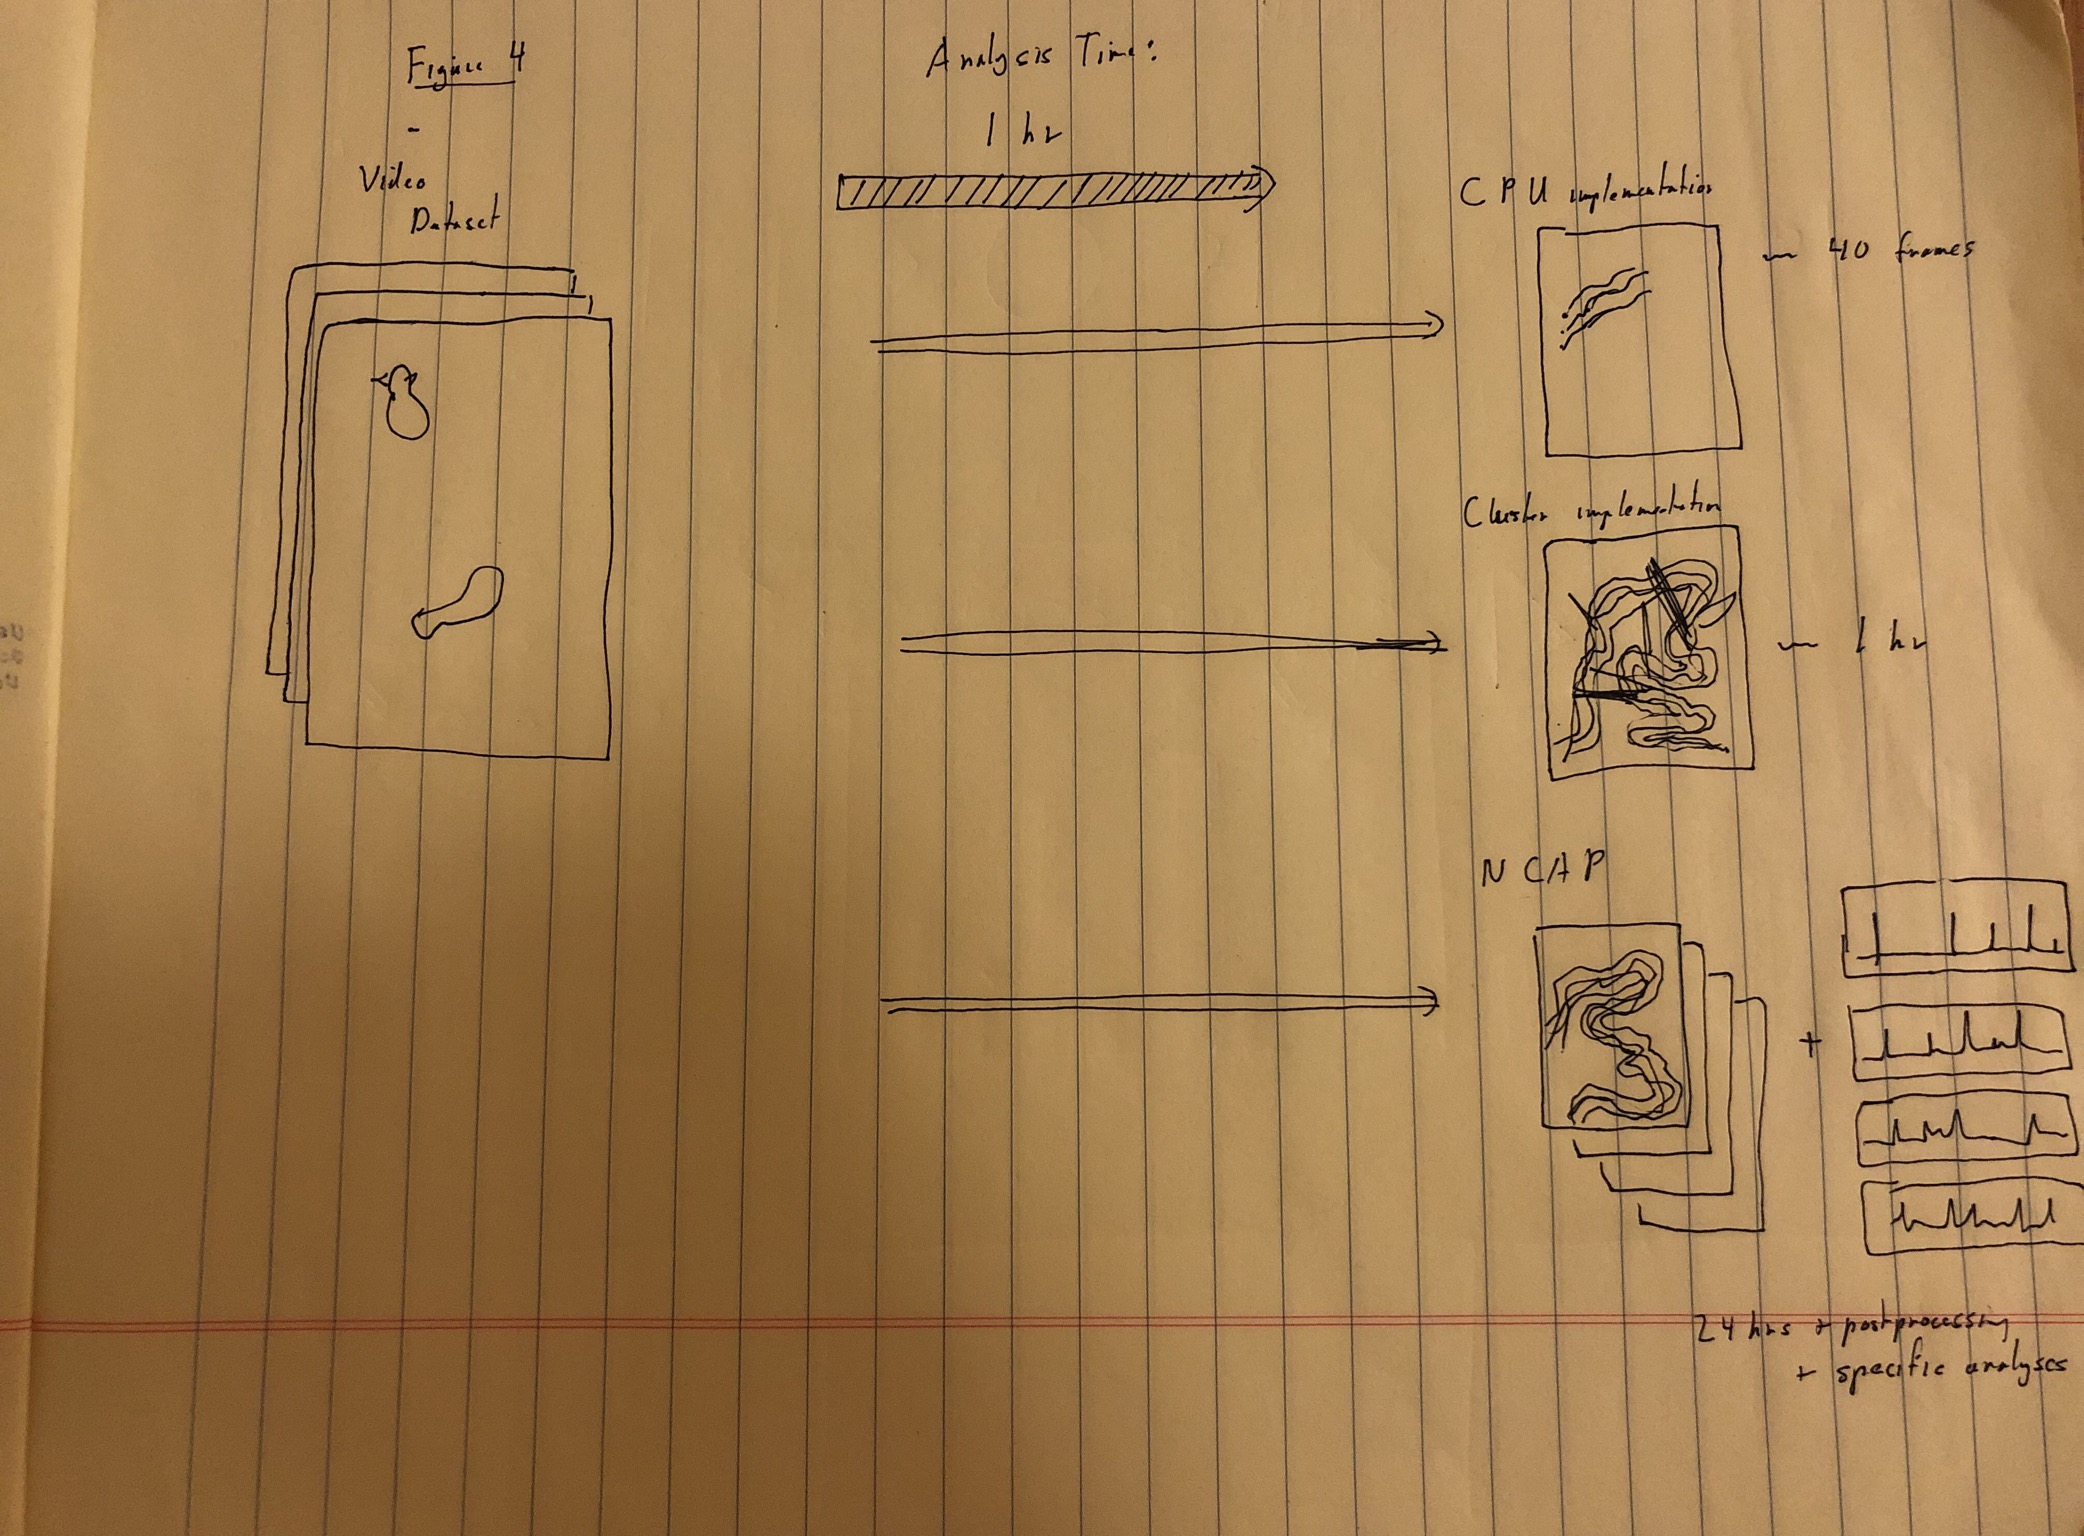 Figure 4
-
Video
Dataset
Analysis Time:
1 hr
CPU implementation
~ 40 frames
Cluster implementation
~ 1 hr
NCAP
+
24 hrs + postprocessing
+ specific analyses